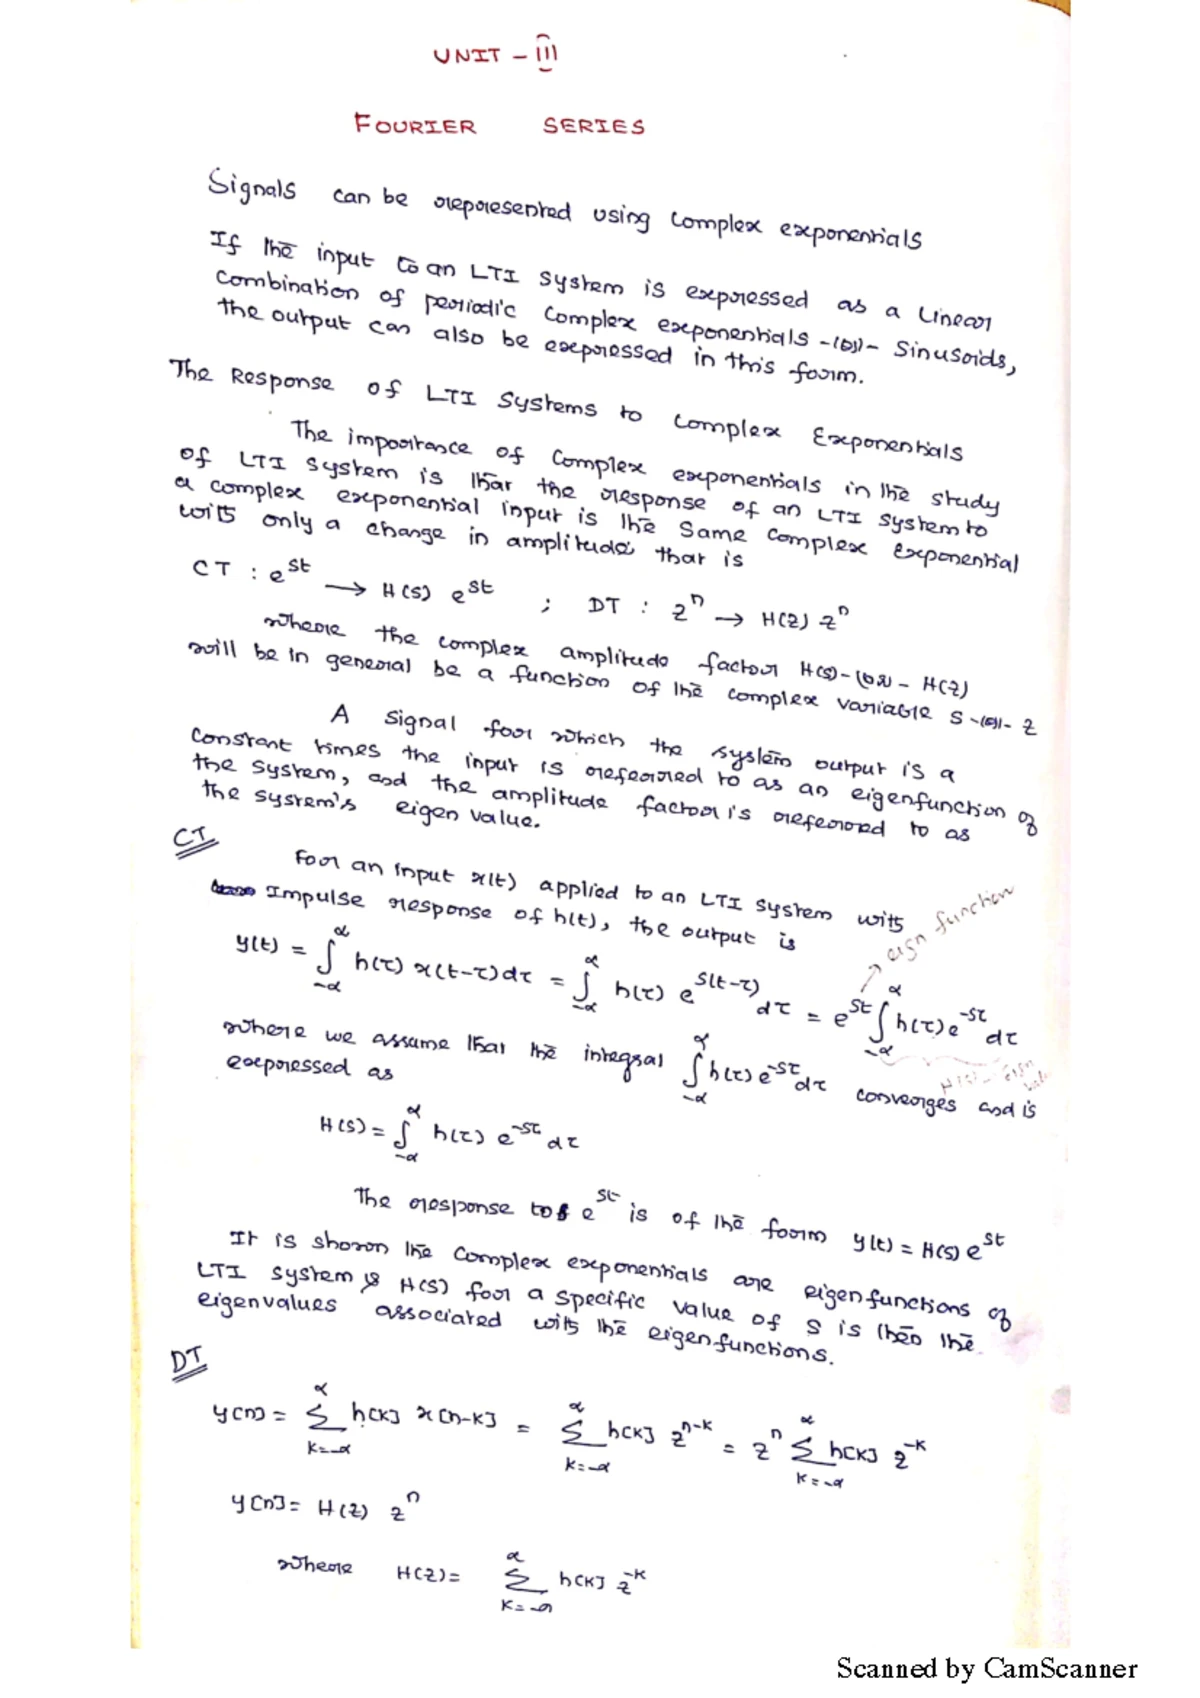 UNIT - III
FOURIER SERIES
Signals can be represented using complex exponentials
If the input to an LTI system is expressed as a Linear
combination of periodic complex exponentials -(or)- sinusoids,
the output can also be expressed in this form.
The Response of LTI Systems to complex Exponentials
The importance of complex exponentials in the study
of LTI system is that the response of an LTI system to
a complex exponential input is the same complex exponential
with only a change in amplitude, that is
CT : e^{st} → H(s) e^{st} ; DT : z^n → H(z) z^n
where the complex amplitude factor H(s)-(or)- H(z)
will be in general be a function of the complex variable s -(or)- z
A signal for which the system output is a
constant times the input is referred to as an eigenfunction of
the system, and the amplitude factor is referred to as
the system's eigen value.
CT
For an input x(t) applied to an LTI system with
Impulse response of h(t), the output is
eign function
y(t) = ∫_{-α}^{α} h(τ) x(t-τ)dτ = ∫_{-α}^{α} h(τ) e^{s(t-τ)} dτ = e^{st} ∫_{-α}^{α} h(τ) e^{-sτ} dτ
H(s) - eign
where we assume that the integral ∫_{-α}^{α} h(τ) e^{-sτ} dτ converges and is
expressed as
H(s) = ∫_{-α}^{α} h(τ) e^{-sτ} dτ
The response to e^{st} is of the form y(t) = H(s) e^{st}
It is shown the complex exponentials are eigenfunctions of
LTI system & H(s) for a specific value of s is then the
eigenvalues associated with the eigenfunctions.
DT
y[n] = ∑_{k=-α}^{α} h[k] x[n-k] = ∑_{k=-α}^{α} h[k] z^{n-k} = z^n ∑_{k=-α}^{α} h[k] z^{-k}
y[n] = H(z) z^n
where H(z) = ∑_{k=-α}^{α} h[k] z^{-k}
Scanned by CamScanner